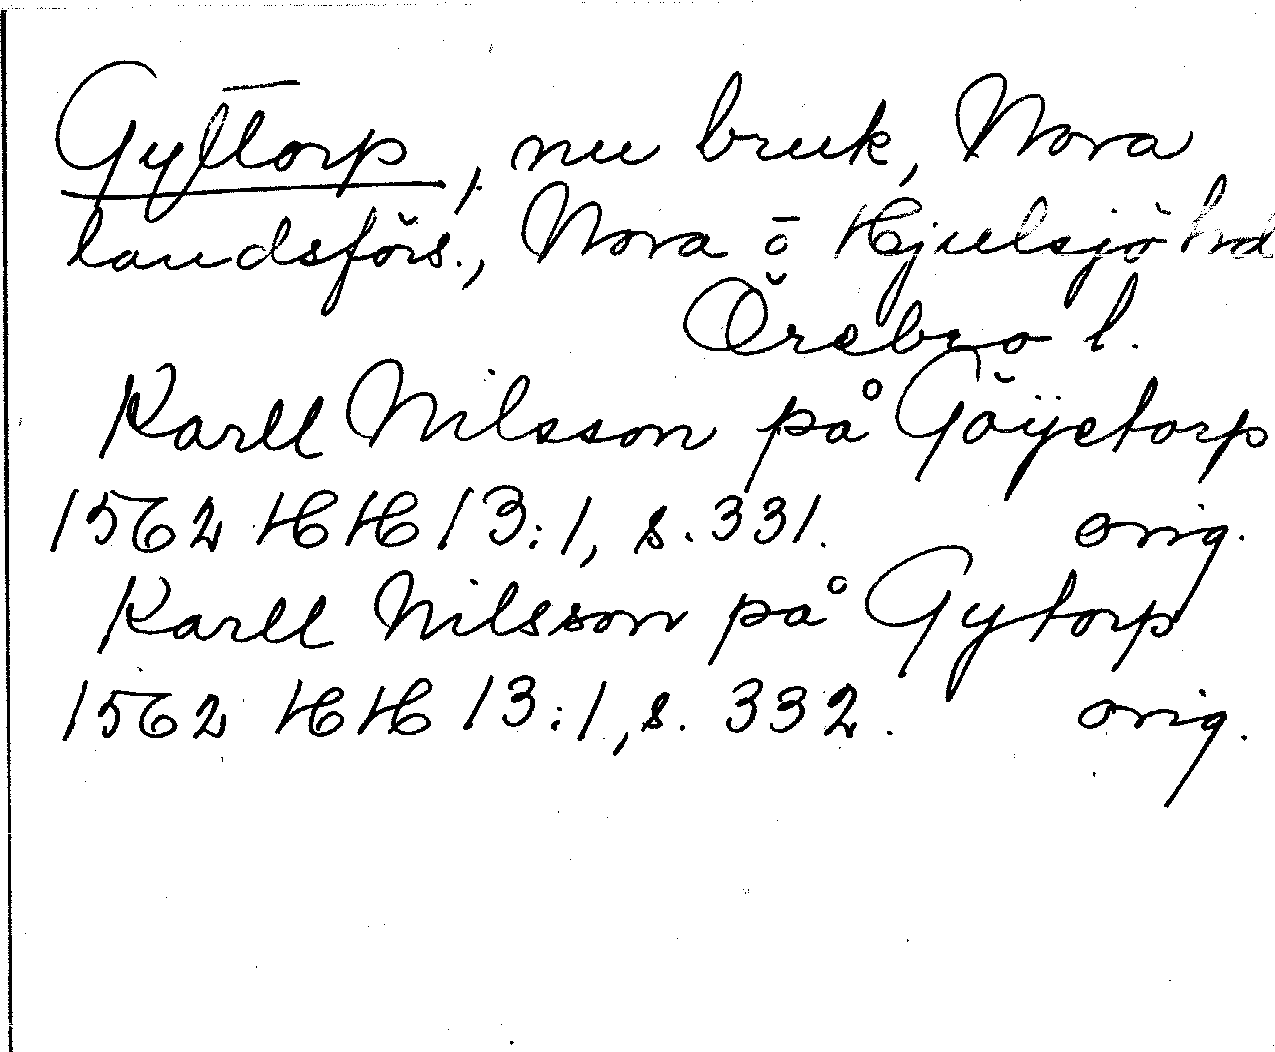 Gyttorp, nu bruk, Nora
landsförs., Nora o Hjulsjö hd
Örebro l.
Karll Nilsson på Göÿetorp
1562 HH 13:1, s. 331. orig.
Karll Nilsson på Gytorp
1562 HH 13:1, s. 332. orig.